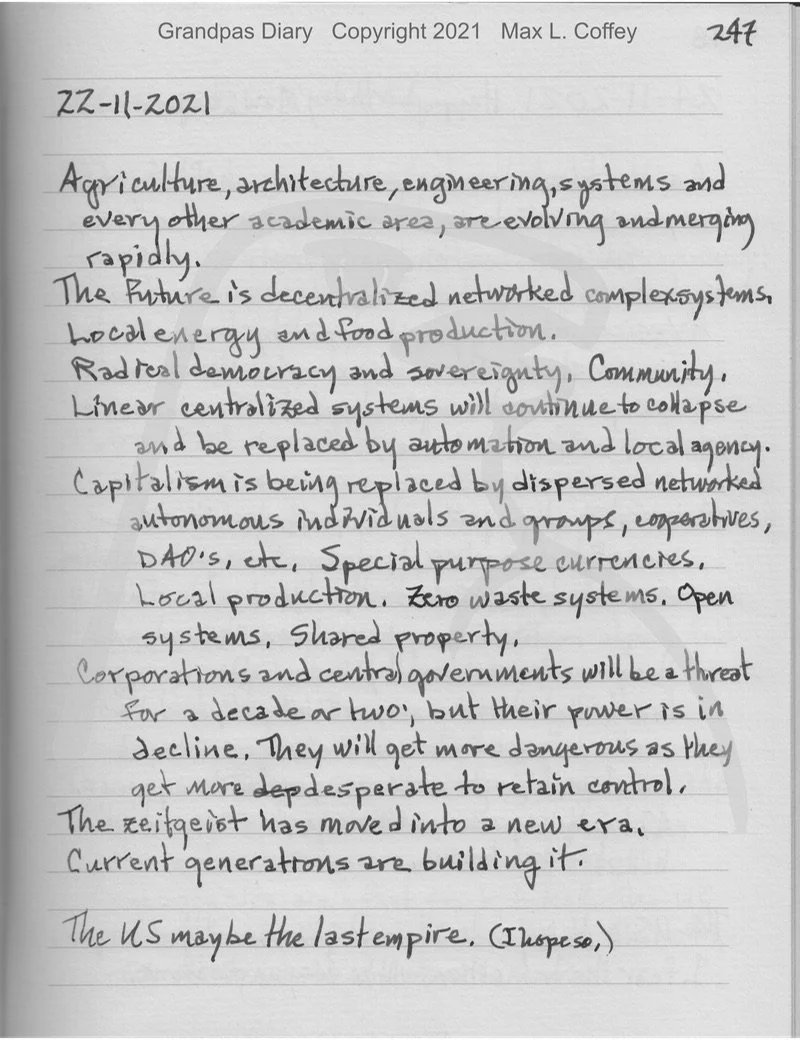 Grandpas Diary Copyright 2021 Max L. Coffey 247
22-11-2021
Agriculture, architecture, engineering, systems and
every other academic area, are evolving and merging
rapidly.
The Future is decentralized networked complex systems.
Local energy and food production.
Radical democracy and sovereignty. Community.
Linear centralized systems will continue to collapse
and be replaced by automation and local agency.
Capitalism is being replaced by dispersed networked
autonomous individuals and groups, cooperatives,
DAO's, etc. Special purpose currencies.
Local production. Zero waste systems. Open
systems. Shared property.
Corporations and central governments will be a threat
for a decade or two, but their power is in
decline. They will get more dangerous as they
get more dep desperate to retain control.
The zeitgeist has moved into a new era.
Current generations are building it.
The US maybe the last empire. (I hope so.)